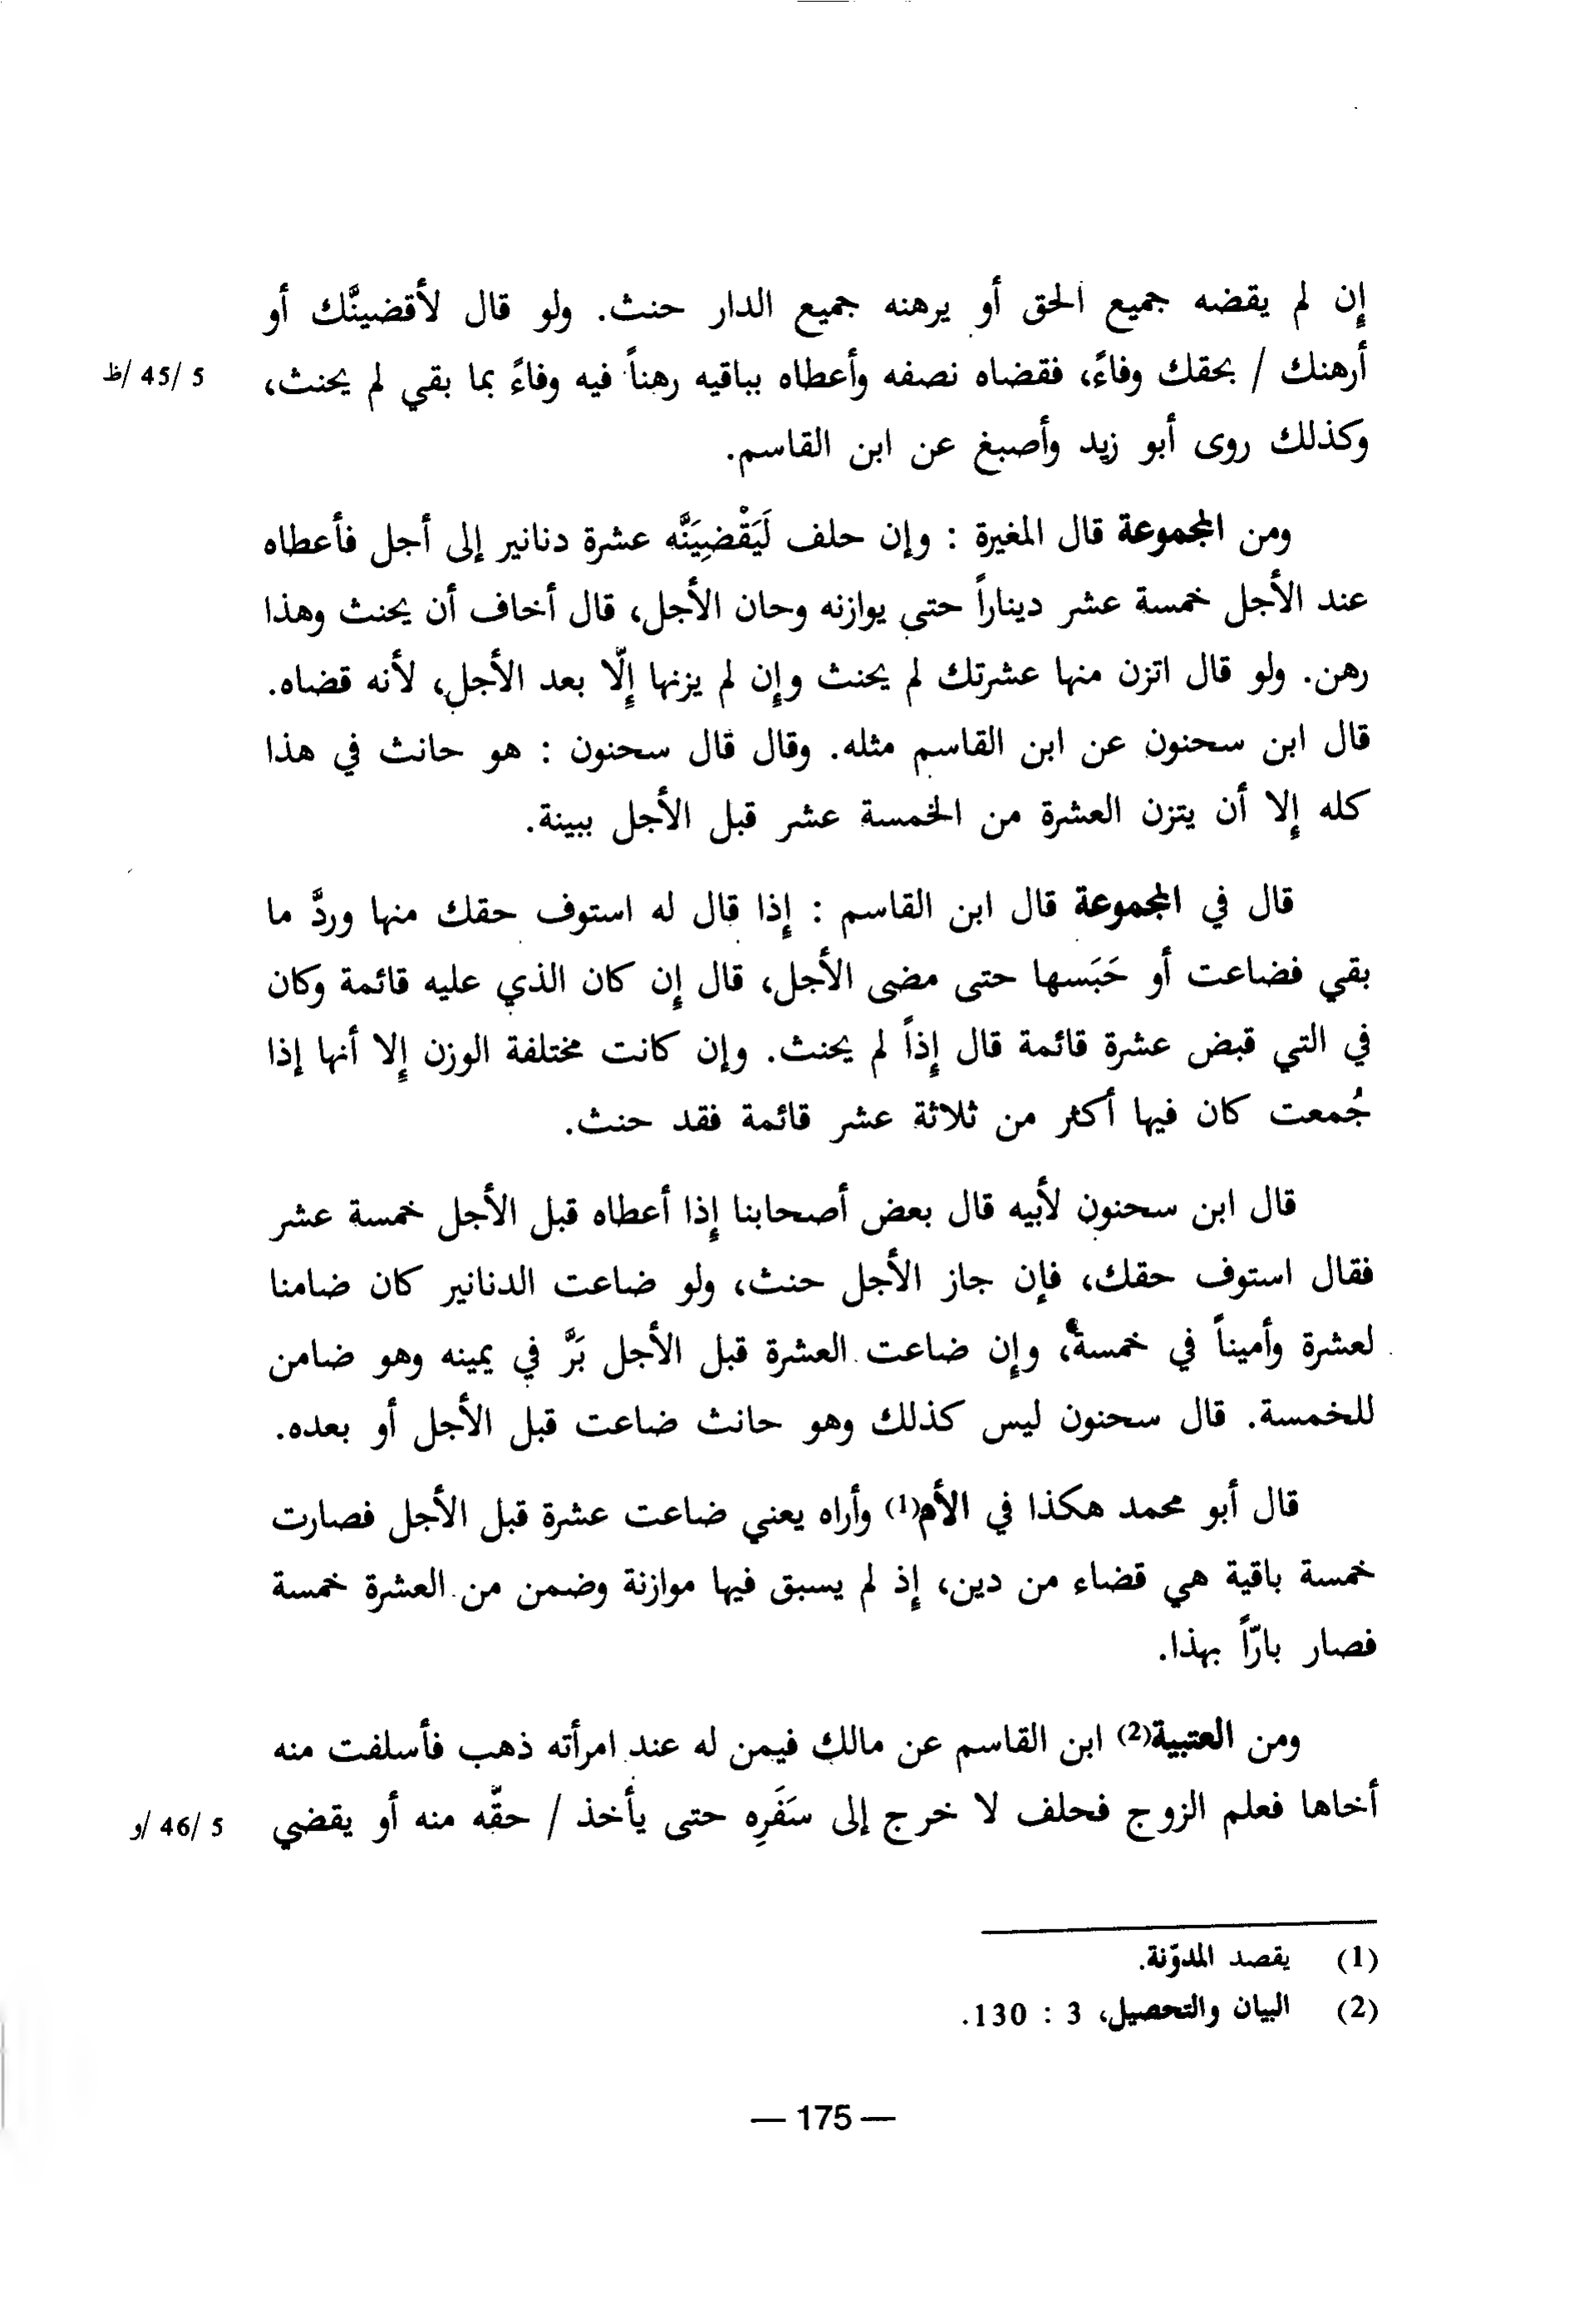 إن لم يقضه جميع الحق أو يرهنه جميع الدار حنث. ولو قال لأقضينَّك أو
أرهنك / بحقك وفاءً، فقضاه نصفه وأعطاه بباقيه رهناً فيه وفاءً بما بقي لم يحنث، 5 /45 /ظ
وكذلك روى أبو زيد وأصبغ عن ابن القاسم.
ومن المجموعة قال المغيرة : وإن حلف لَيَقْضِيَنَّه عشرة دنانير إلى أجل فأعطاه
عند الأجل خمسة عشر ديناراً حتى يوازنه وحان الأجل، قال أخاف أن يحنث وهذا
رهن. ولو قال اتزن منها عشرتك لم يحنث وإن لم يزنها إلّا بعد الأجل، لأنه قضاه.
قال ابن سحنون عن ابن القاسم مثله. وقال قال سحنون : هو حانث في هذا
كله إلا أن يتزن العشرة من الخمسة عشر قبل الأجل ببينة.
قال في المجموعة قال ابن القاسم : إذا قال له استوف حقك منها وردَّ ما
بقي فضاعت أو حَبَسها حتى مضى الأجل، قال إن كان الذي عليه قائمة وكان
في التي قبض عشرة قائمة قال إذاً لم يحنث. وإن كانت مختلفة الوزن إلا أنها إذا
جُمعت كان فيها أكثر من ثلاثة عشر قائمة فقد حنث.
قال ابن سحنون لأبيه قال بعض أصحابنا إذا أعطاه قبل الأجل خمسة عشر
فقال استوف حقك، فإن جاز الأجل حنث، ولو ضاعت الدنانير كان ضامنا
لعشرة وأميناً في خمسة، وإن ضاعت العشرة قبل الأجل بَرَّ في يمينه وهو ضامن
للخمسة. قال سحنون ليس كذلك وهو حانث ضاعت قبل الأجل أو بعده.
قال أبو محمد هكذا في الأم(1) وأراه يعني ضاعت عشرة قبل الأجل فصارت
خمسة باقية هي قضاء من دين، إذ لم يسبق فيها موازنة وضمن من العشرة خمسة
فصار بارّاً بهذا.
ومن العتبية(2) ابن القاسم عن مالك فيمن له عند امرأته ذهب فأسلفت منه
أخاها فعلم الزوج فحلف لا خرج إلى سَفَرِه حتى يأخذ / حقّه منه أو يقضي 5 /46 /و
(1) يقصد المدوّنة.
(2) البيان والتحصيل، 3 : 130.
— 175 —